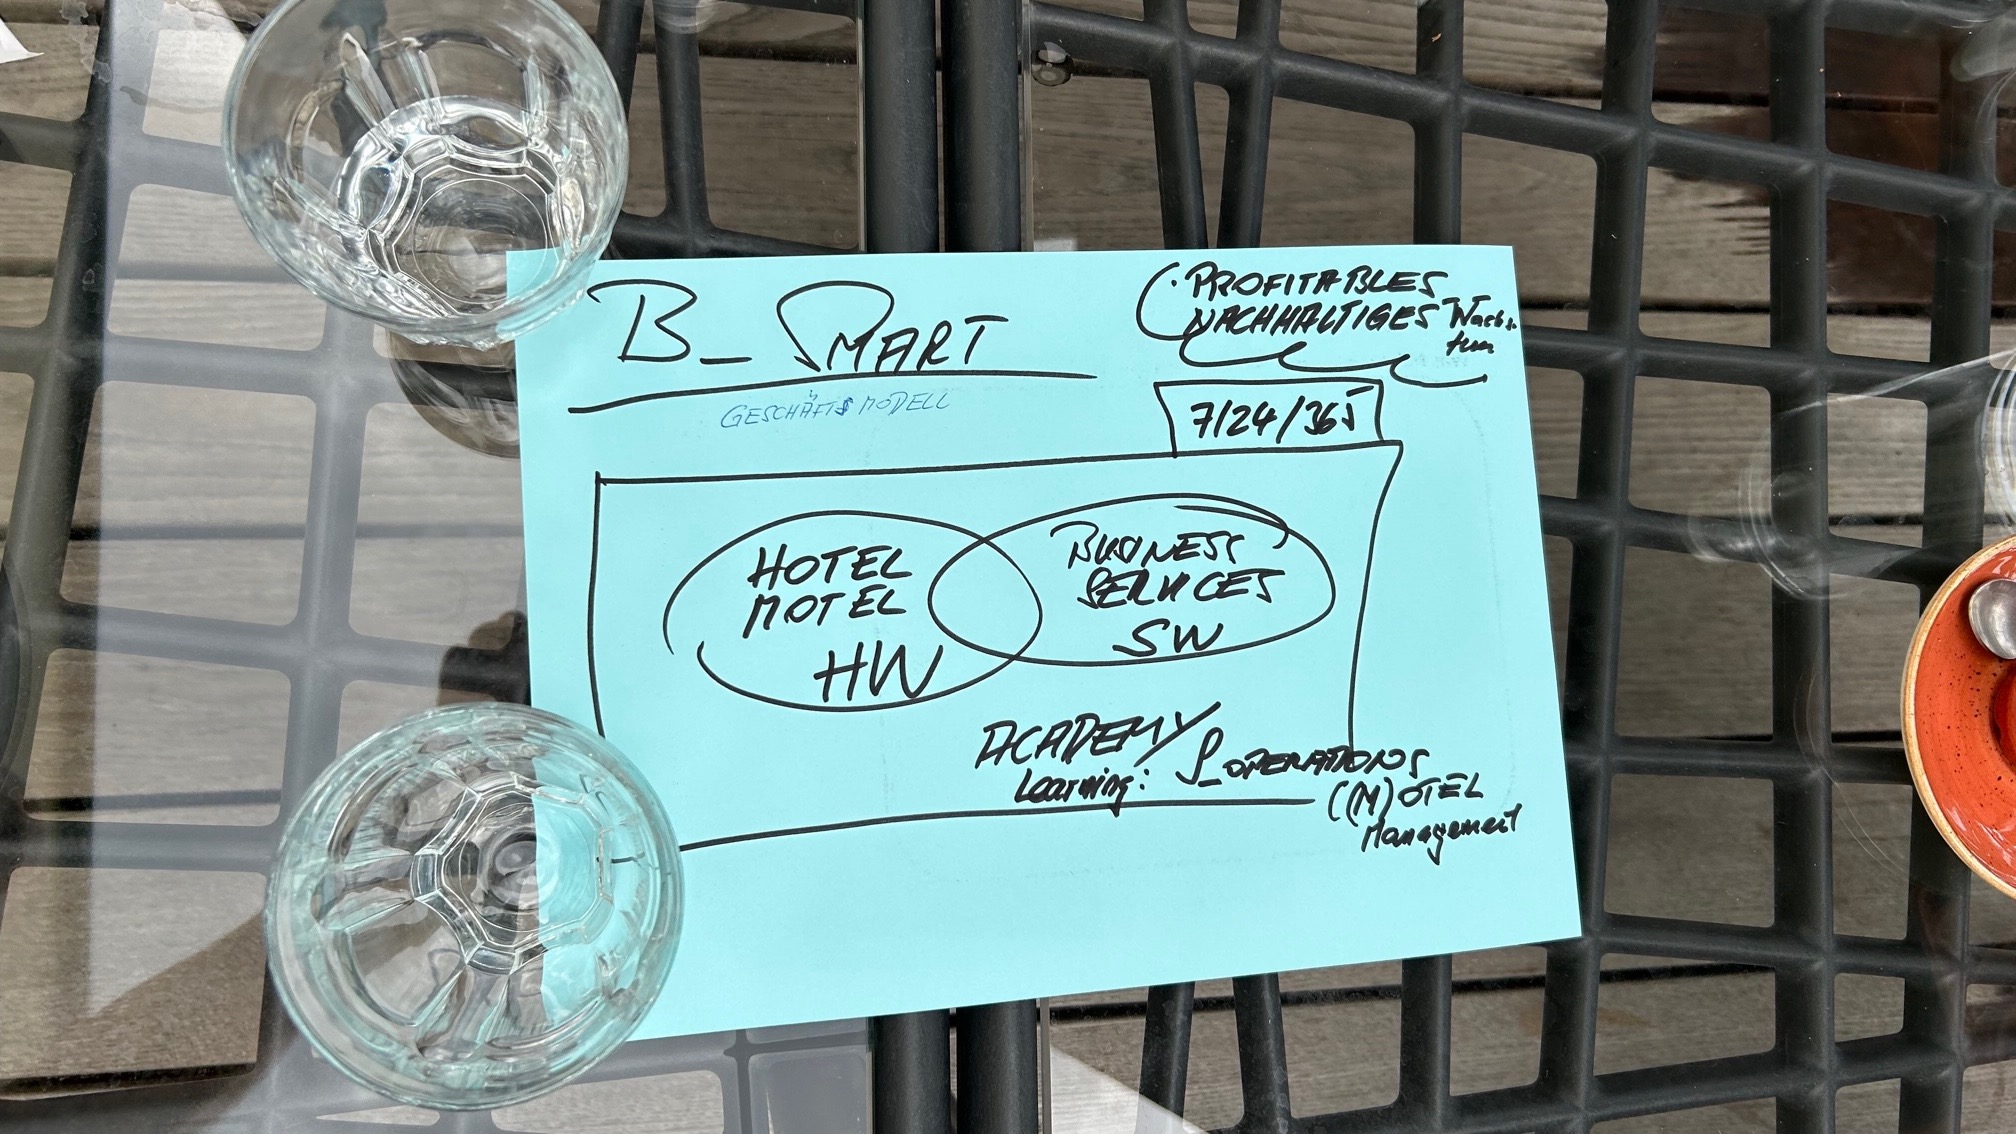 B_SMART
GESCHÄFTSMODELL
PROFITABLES
NACHHALTIGES Wachs-
tum
7/24/365
HOTEL
MOTEL
HW
BUSINESS
SERVICES
SW
ACADEMY
Learning:
OPERATIONS
(M)OTEL
Management